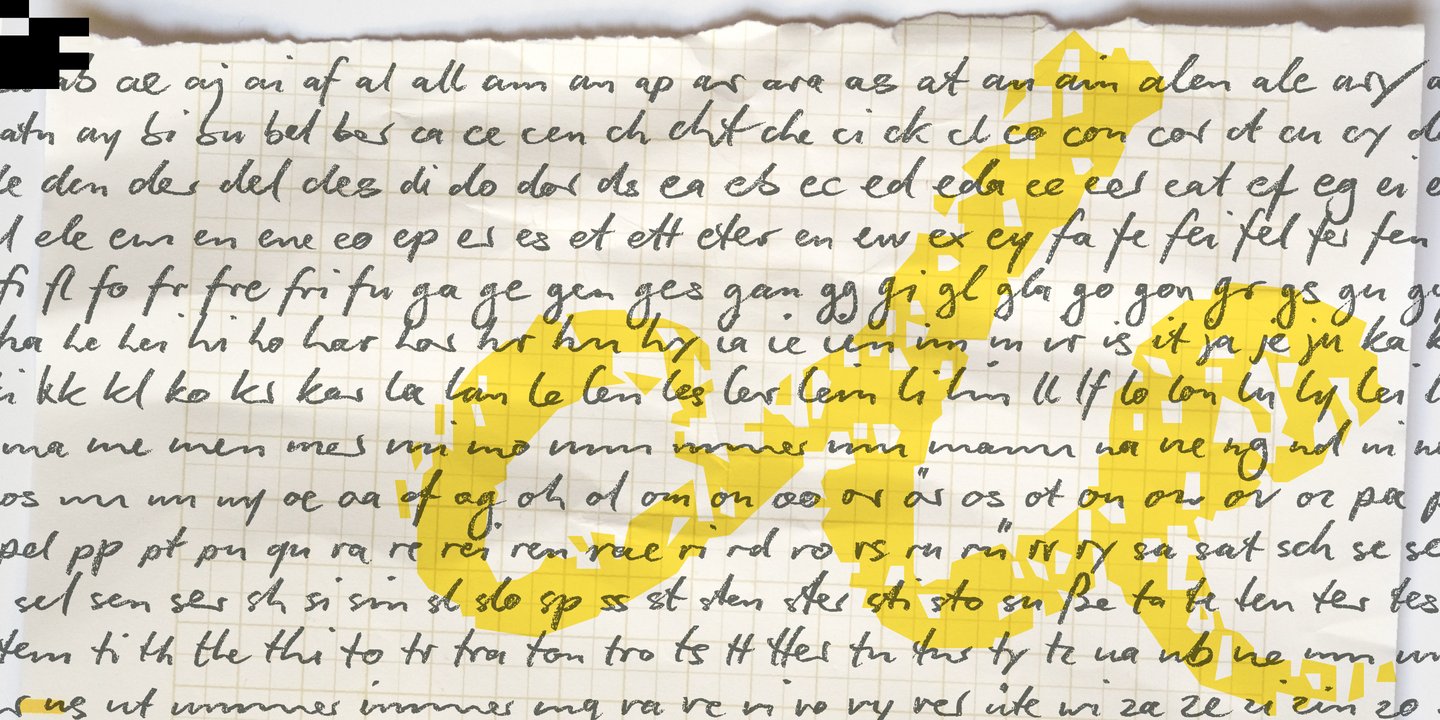 ab ae aj ai af al all am an ap ar ara as at au ain alen ale ary
atn ay bi bu bel ber ca ce cen ch cht che ci ck cl co con cor ct cu cy
le den der del des di do dor ds ea eb ec ed eda ee eer eat ef eg ei
ele em en ene eo ep er es et ett eter eu ew ex ey fa fe fei fel fer fen
fi fl fo fr fre fri fu ga ge gen ges gan gg gi gl gla go gon gr gs gu
ha he hei hi ho har hr hu hy ia ie im in ir is it ja je ju ka
kk kl ko kr kar la lan le len les ler lein li lin ll lf lo lon lu ly lei
ma me men mer mi mo mm mmer mn mann na ne ng nd ni
os nn nu ny oe oa of og oh ol om on oo or ör os ot ou ow ov oz pa
pel pp pt pu qu ra re rei ren rae ri rd ro rs ru rü rr ry sa sat sch se
sel sen ser sh si sin sl slo sp ss st sten ster sti sto su ße ta te ten ter tes
tem ti th the thi to tr tra ton tro ts tt tter tu tur ty tz ua ub ue
us ut ummer immer ung va ve vi vo vy ver üte wi za ze zi zin zo
clr